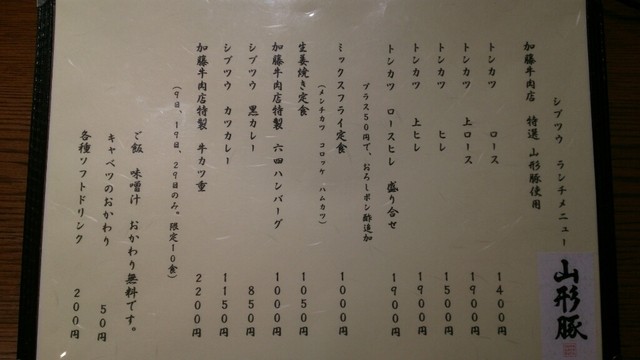 シブツウ ランチメニュー
加藤牛肉店 特選 山形豚使用
山形豚
トンカツ ロース 1400円
トンカツ 上ロース 1900円
トンカツ ヒレ 1500円
トンカツ 上ヒレ 1900円
トンカツ ロースヒレ 盛り合せ 1900円
プラス50円で、おろしポン酢追加
ミックスフライ定食 1000円
(メンチカツ コロッケ ハムカツ)
生姜焼き定食 1050円
加藤牛肉店特製 六四ハンバーグ 1000円
シブツウ 黒カレー 850円
シブツウ カツカレー 1150円
加藤牛肉店特製 牛カツ重 2200円
(9日、19日、29日のみ。限定10食)
ご飯 味噌汁 おかわり無料です。
キャベツのおかわり 50円
各種ソフトドリンク 200円